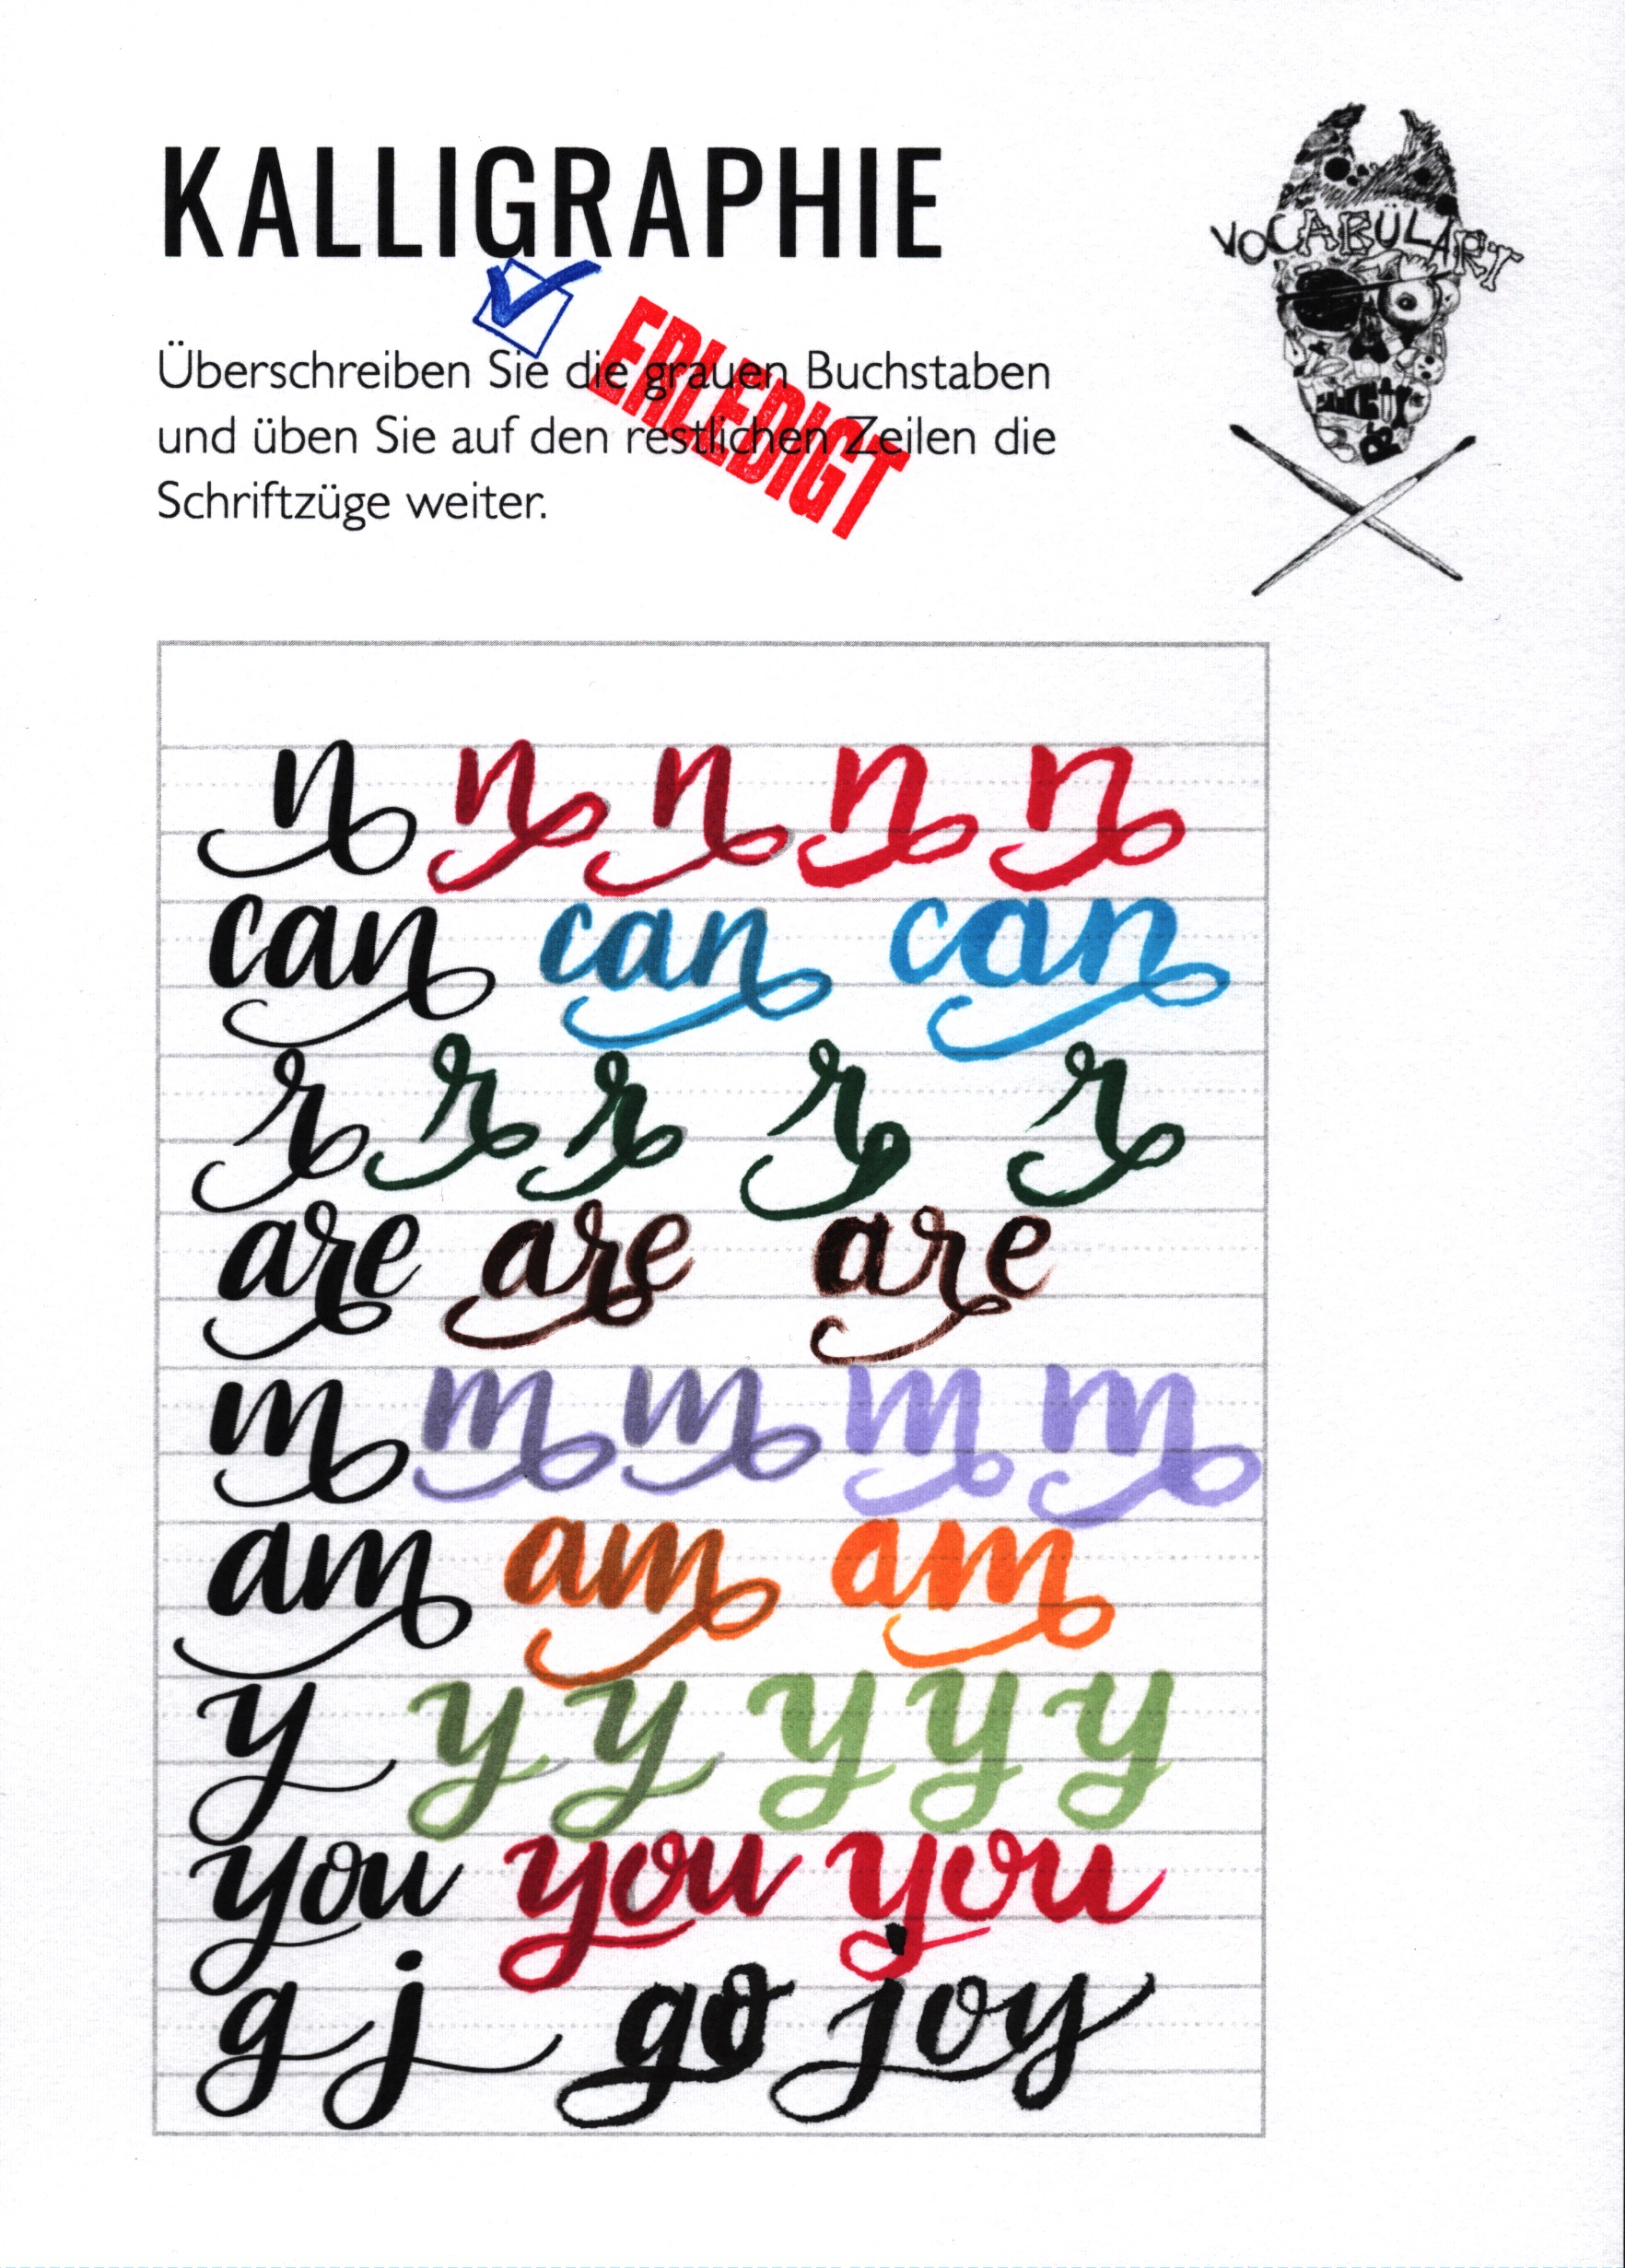 KALLIGRAPHIE
VOCABÜLART
ERLEDIGT
Überschreiben Sie die grauen Buchstaben
und üben Sie auf den restlichen Zeilen die
Schriftzüge weiter.
n n n n n
can can can
r r r r r
are are are
m m m m m
am am am
y y y y y y
you you you
g j go joy